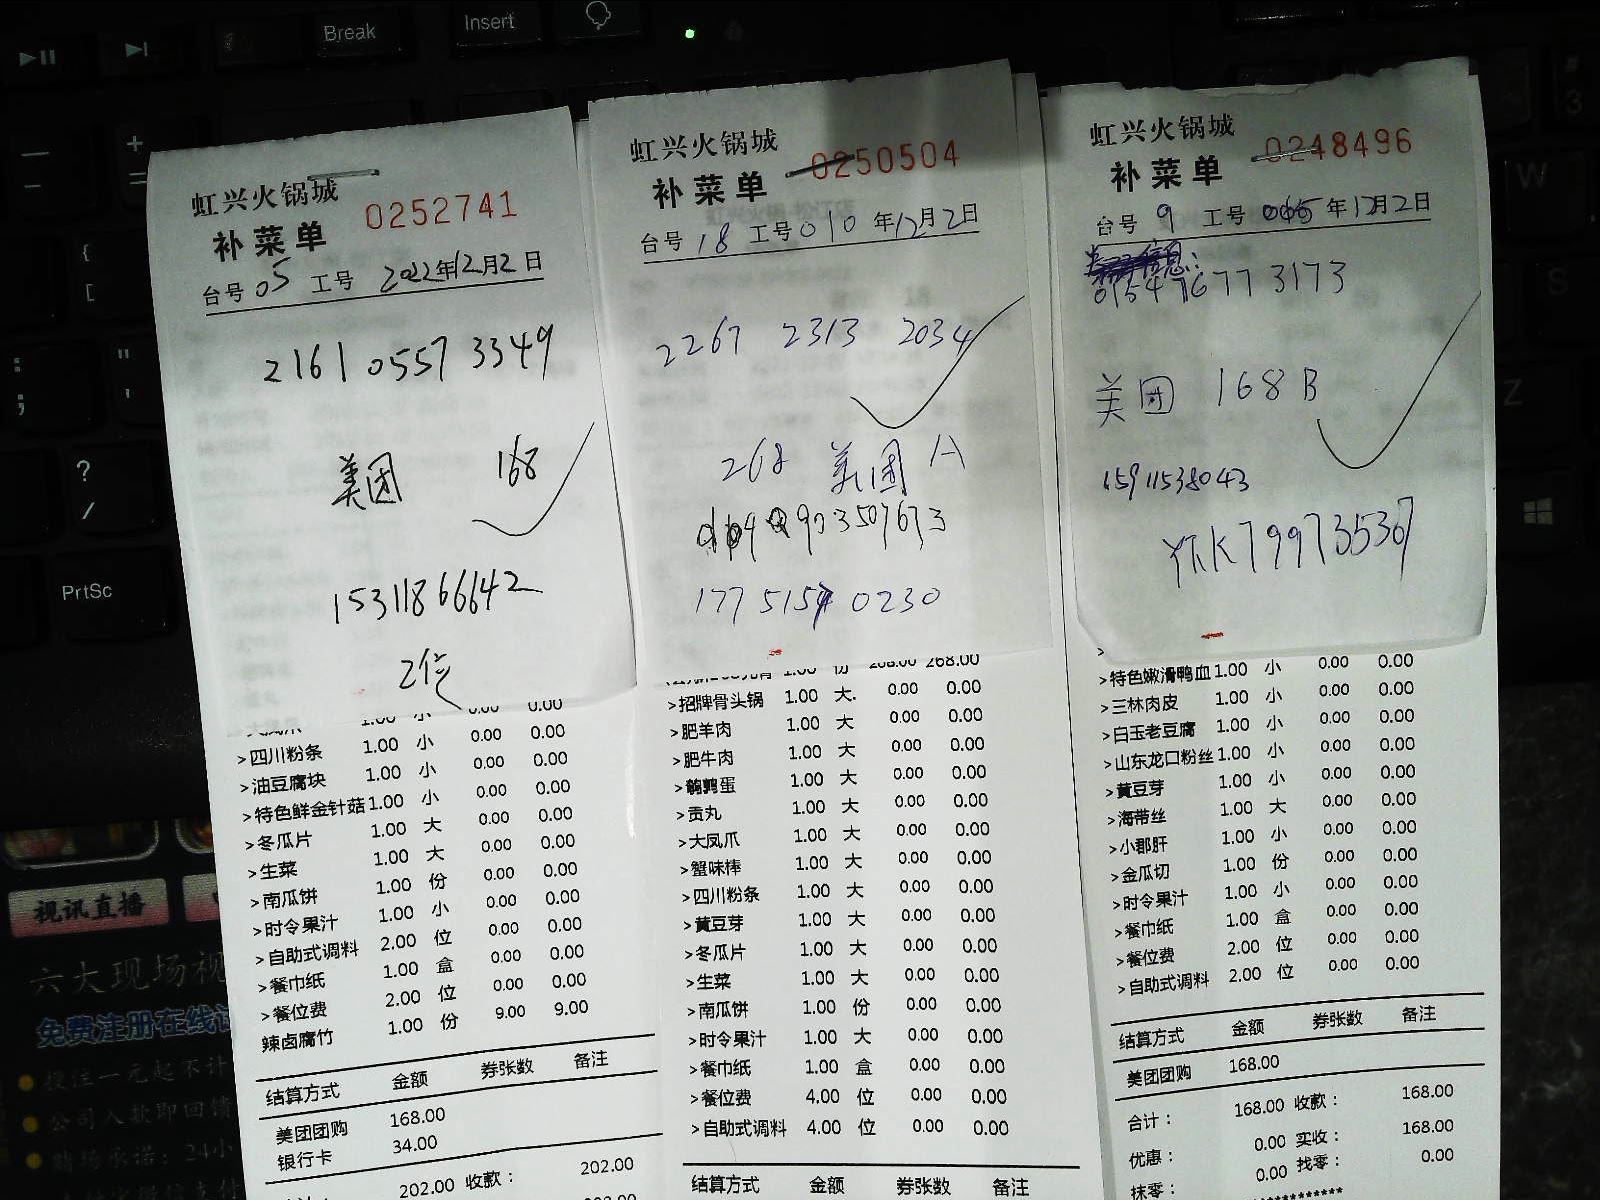 Break
Insert
+
=
{
[
:
;
"
'
?
/
PrtSc
W
S
Z
3
虹兴火锅城
补菜单
0252741
台号 05 工号 2022年12月2日
2161 0557 3349
美团 168
15311866642
2位
>四川粉条 1.00 小 0.00 0.00
>油豆腐块 1.00 小 0.00 0.00
>特色鲜金针菇 1.00 小 0.00 0.00
>冬瓜片 1.00 大 0.00 0.00
>生菜 1.00 大 0.00 0.00
>南瓜饼 1.00 份 0.00 0.00
>时令果汁 1.00 小 0.00 0.00
>自助式调料 2.00 位 0.00 0.00
>餐巾纸 1.00 盒 0.00 0.00
>餐位费 2.00 位 0.00 0.00
辣卤腐竹 1.00 份 9.00 9.00
结算方式 金额 券张数 备注
美团团购 168.00
银行卡 34.00
202.00 收款： 202.00
虹兴火锅城
补菜单
0250504
台号 18 工号 010 年12月2日
2267 2313 2034
268 美团 A
177 5154 0230
268.00 268.00
>招牌骨头锅 1.00 大 0.00 0.00
>肥羊肉 1.00 大 0.00 0.00
>肥牛肉 1.00 大 0.00 0.00
>鹌鹑蛋 1.00 大 0.00 0.00
>贡丸 1.00 大 0.00 0.00
>大凤爪 1.00 大 0.00 0.00
>蟹味棒 1.00 大 0.00 0.00
>四川粉条 1.00 大 0.00 0.00
>黄豆芽 1.00 大 0.00 0.00
>冬瓜片 1.00 大 0.00 0.00
>生菜 1.00 大 0.00 0.00
>南瓜饼 1.00 份 0.00 0.00
>时令果汁 1.00 大 0.00 0.00
>餐巾纸 1.00 盒 0.00 0.00
>餐位费 4.00 位 0.00 0.00
>自助式调料 4.00 位 0.00 0.00
结算方式 金额 券张数 备注
虹兴火锅城
补菜单
0248496
台号 9 工号 年12月2日
信息：
0154 7677 3173
美团 168B
15911538043
>特色嫩滑鸭血 1.00 小 0.00 0.00
>三林肉皮 1.00 小 0.00 0.00
>白玉老豆腐 1.00 小 0.00 0.00
>山东龙口粉丝 1.00 小 0.00 0.00
>黄豆芽 1.00 小 0.00 0.00
>海带丝 1.00 大 0.00 0.00
>小郡肝 1.00 小 0.00 0.00
>金瓜切 1.00 份 0.00 0.00
>时令果汁 1.00 小 0.00 0.00
>餐巾纸 1.00 盒 0.00 0.00
>餐位费 2.00 位 0.00 0.00
>自助式调料 2.00 位 0.00 0.00
结算方式 金额 券张数 备注
美团团购 168.00
合计： 168.00 收款： 168.00
优惠： 0.00 实收： 168.00
抹零： 0.00 找零： 0.00
************
视讯直播
六大现场视
免费注册在线
投注一元起不计
公司入款即回馈
赌场承诺：24小